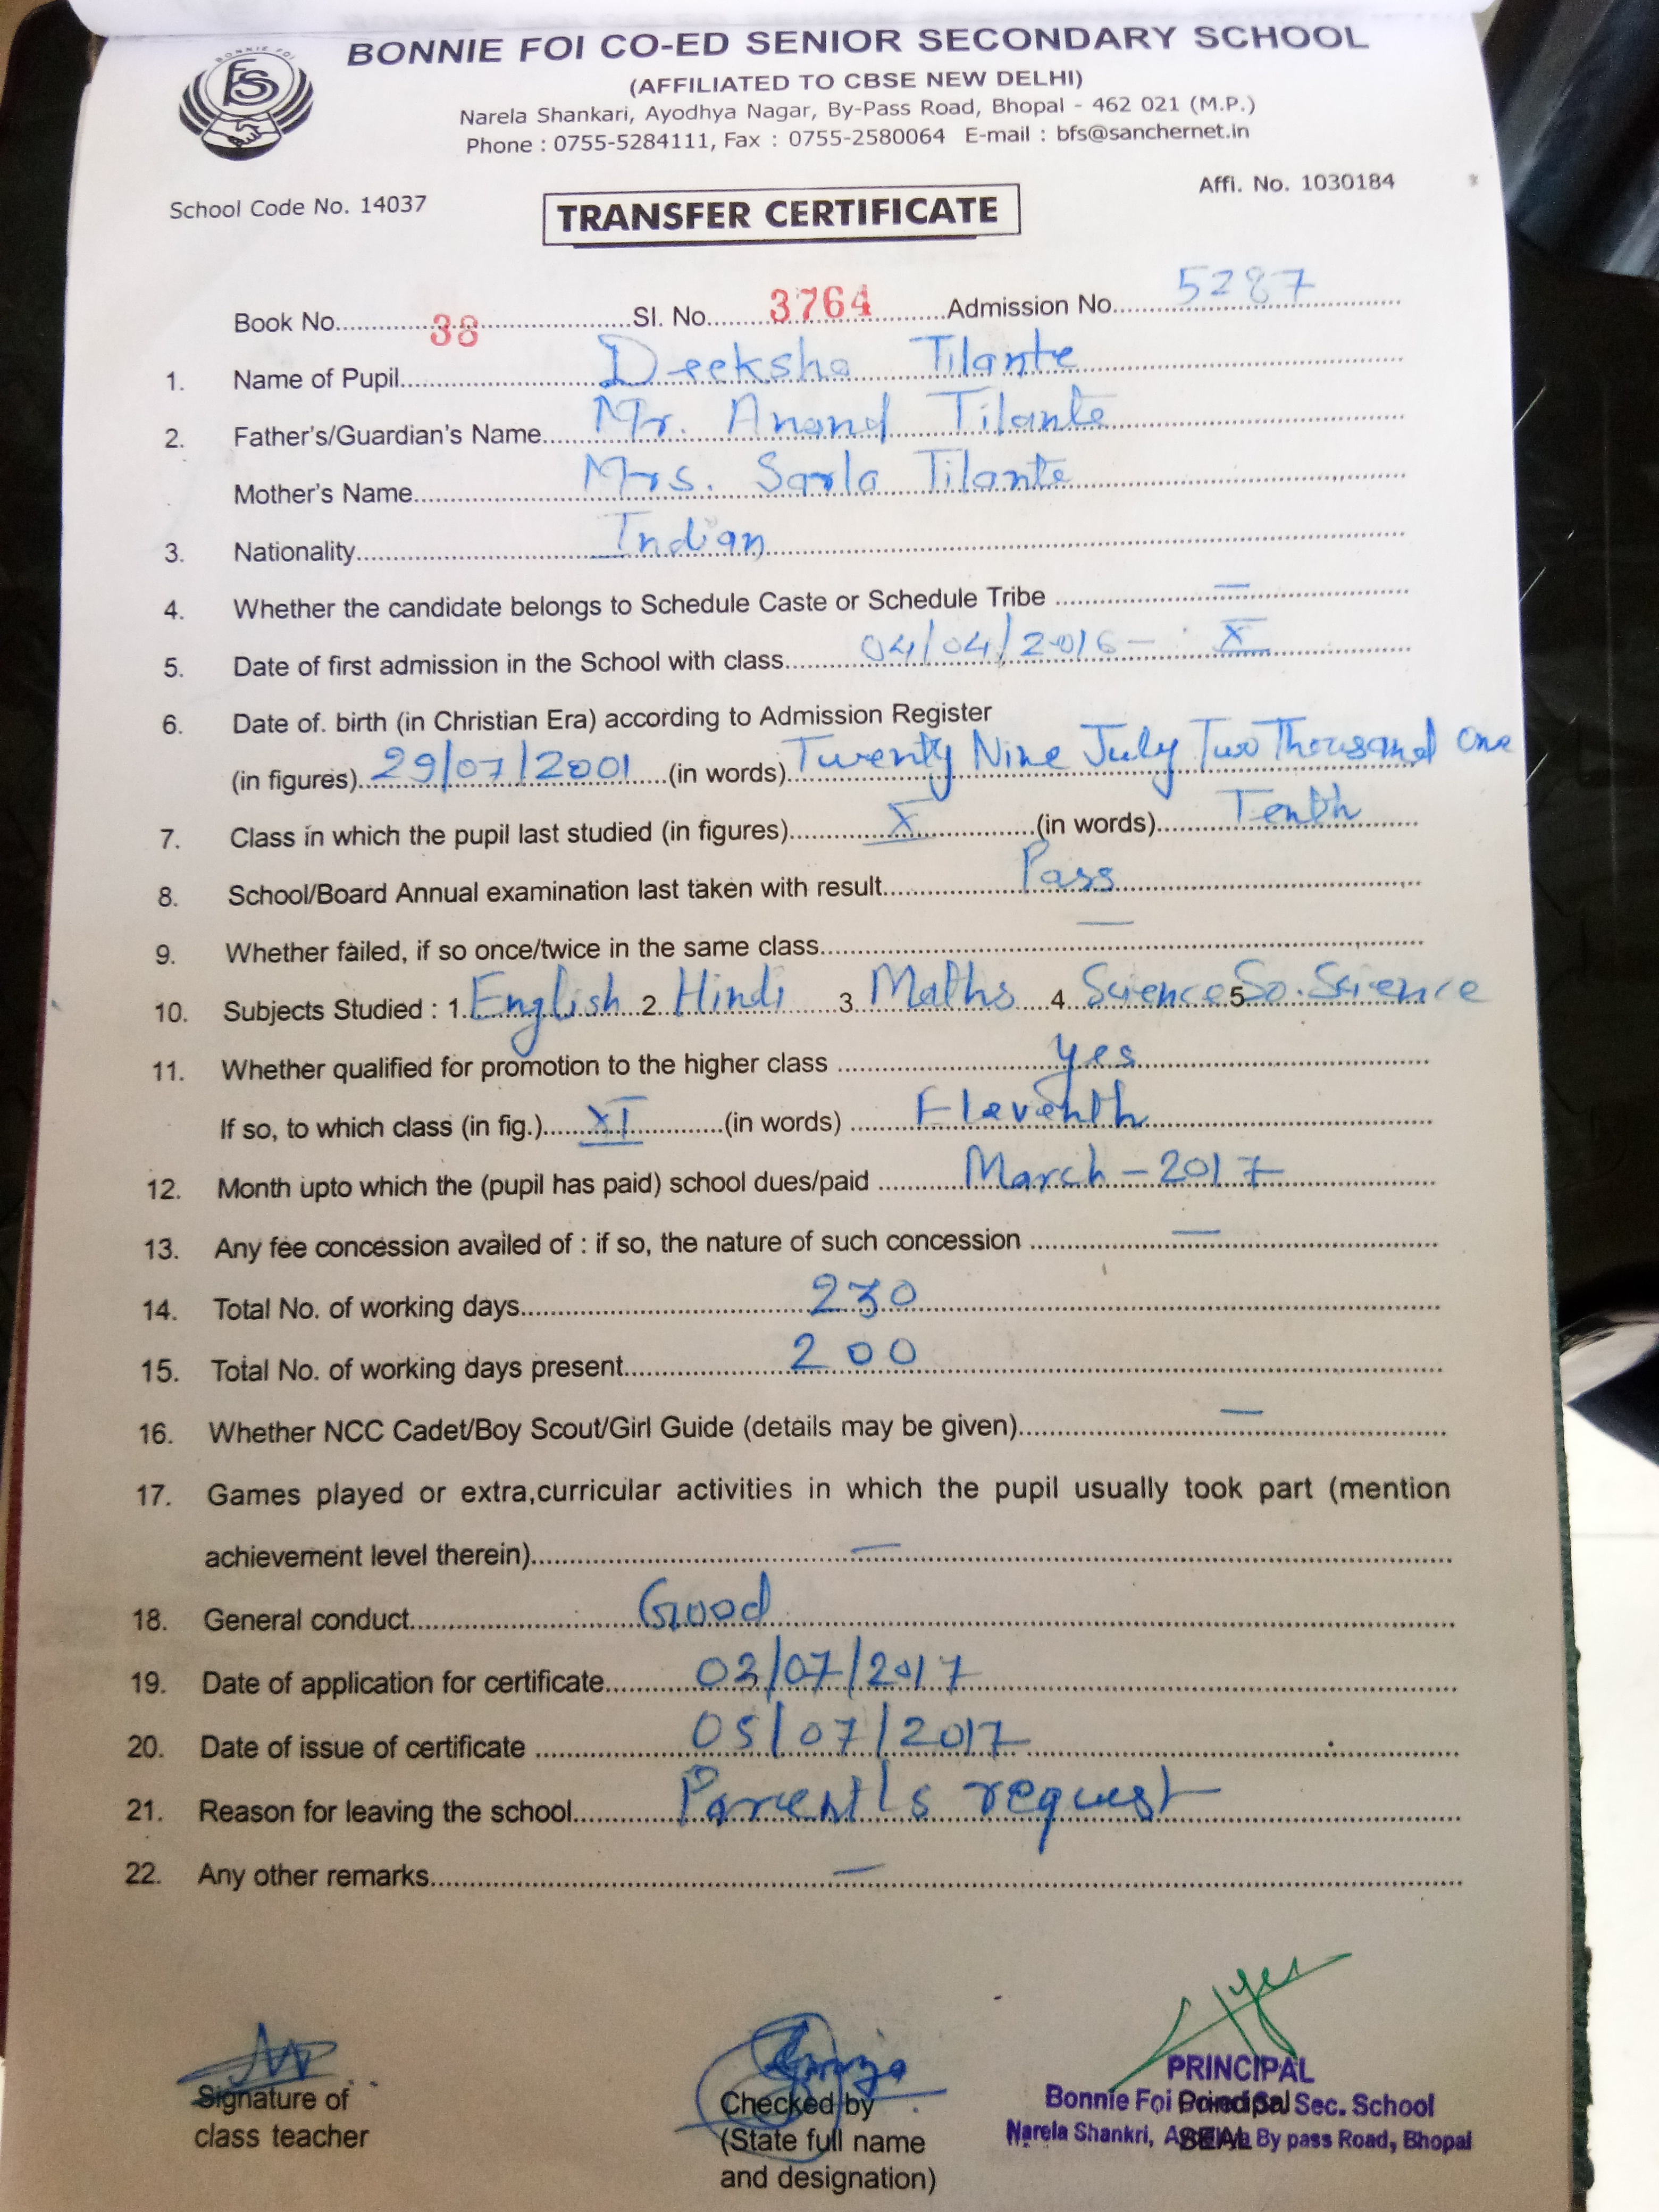 BONNIE FOI
FS
BONNIE FOI CO-ED SENIOR SECONDARY SCHOOL
(AFFILIATED TO CBSE NEW DELHI)
Narela Shankari, Ayodhya Nagar, By-Pass Road, Bhopal - 462 021 (M.P.)
Phone : 0755-5284111, Fax : 0755-2580064 E-mail : bfs@sanchernet.in
School Code No. 14037 Affi. No. 1030184
TRANSFER CERTIFICATE
Book No. 38 Sl. No. 3764 Admission No. 5287
1. Name of Pupil Deeksha Tilante
2. Father's/Guardian's Name Mr. Anand Tilante
Mother's Name Mrs. Sarla Tilante
3. Nationality Indian
4. Whether the candidate belongs to Schedule Caste or Schedule Tribe —
5. Date of first admission in the School with class 04/04/2016 — X
6. Date of. birth (in Christian Era) according to Admission Register
(in figures) 29/07/2001 (in words) Twenty Nine July Two Thousand One
7. Class in which the pupil last studied (in figures) X (in words) Tenth
8. School/Board Annual examination last taken with result Pass
9. Whether failed, if so once/twice in the same class —
10. Subjects Studied : 1. English 2. Hindi 3. Maths 4. Science 5. So. Science
11. Whether qualified for promotion to the higher class yes
If so, to which class (in fig.) XI (in words) Eleventh
12. Month upto which the (pupil has paid) school dues/paid March - 2017
13. Any fee concession availed of : if so, the nature of such concession —
14. Total No. of working days 230
15. Total No. of working days present 200
16. Whether NCC Cadet/Boy Scout/Girl Guide (details may be given) —
17. Games played or extra,curricular activities in which the pupil usually took part (mention
achievement level therein) —
18. General conduct Good
19. Date of application for certificate 03/07/2017
20. Date of issue of certificate 05/07/2017
21. Reason for leaving the school Parent's request
22. Any other remarks —
Signature of
class teacher
Checked by
(State full name
and designation)
PRINCIPAL
Bonnie Foi Sec. School
Principal
Narela Shankri, By pass Road, Bhopal
SEAL